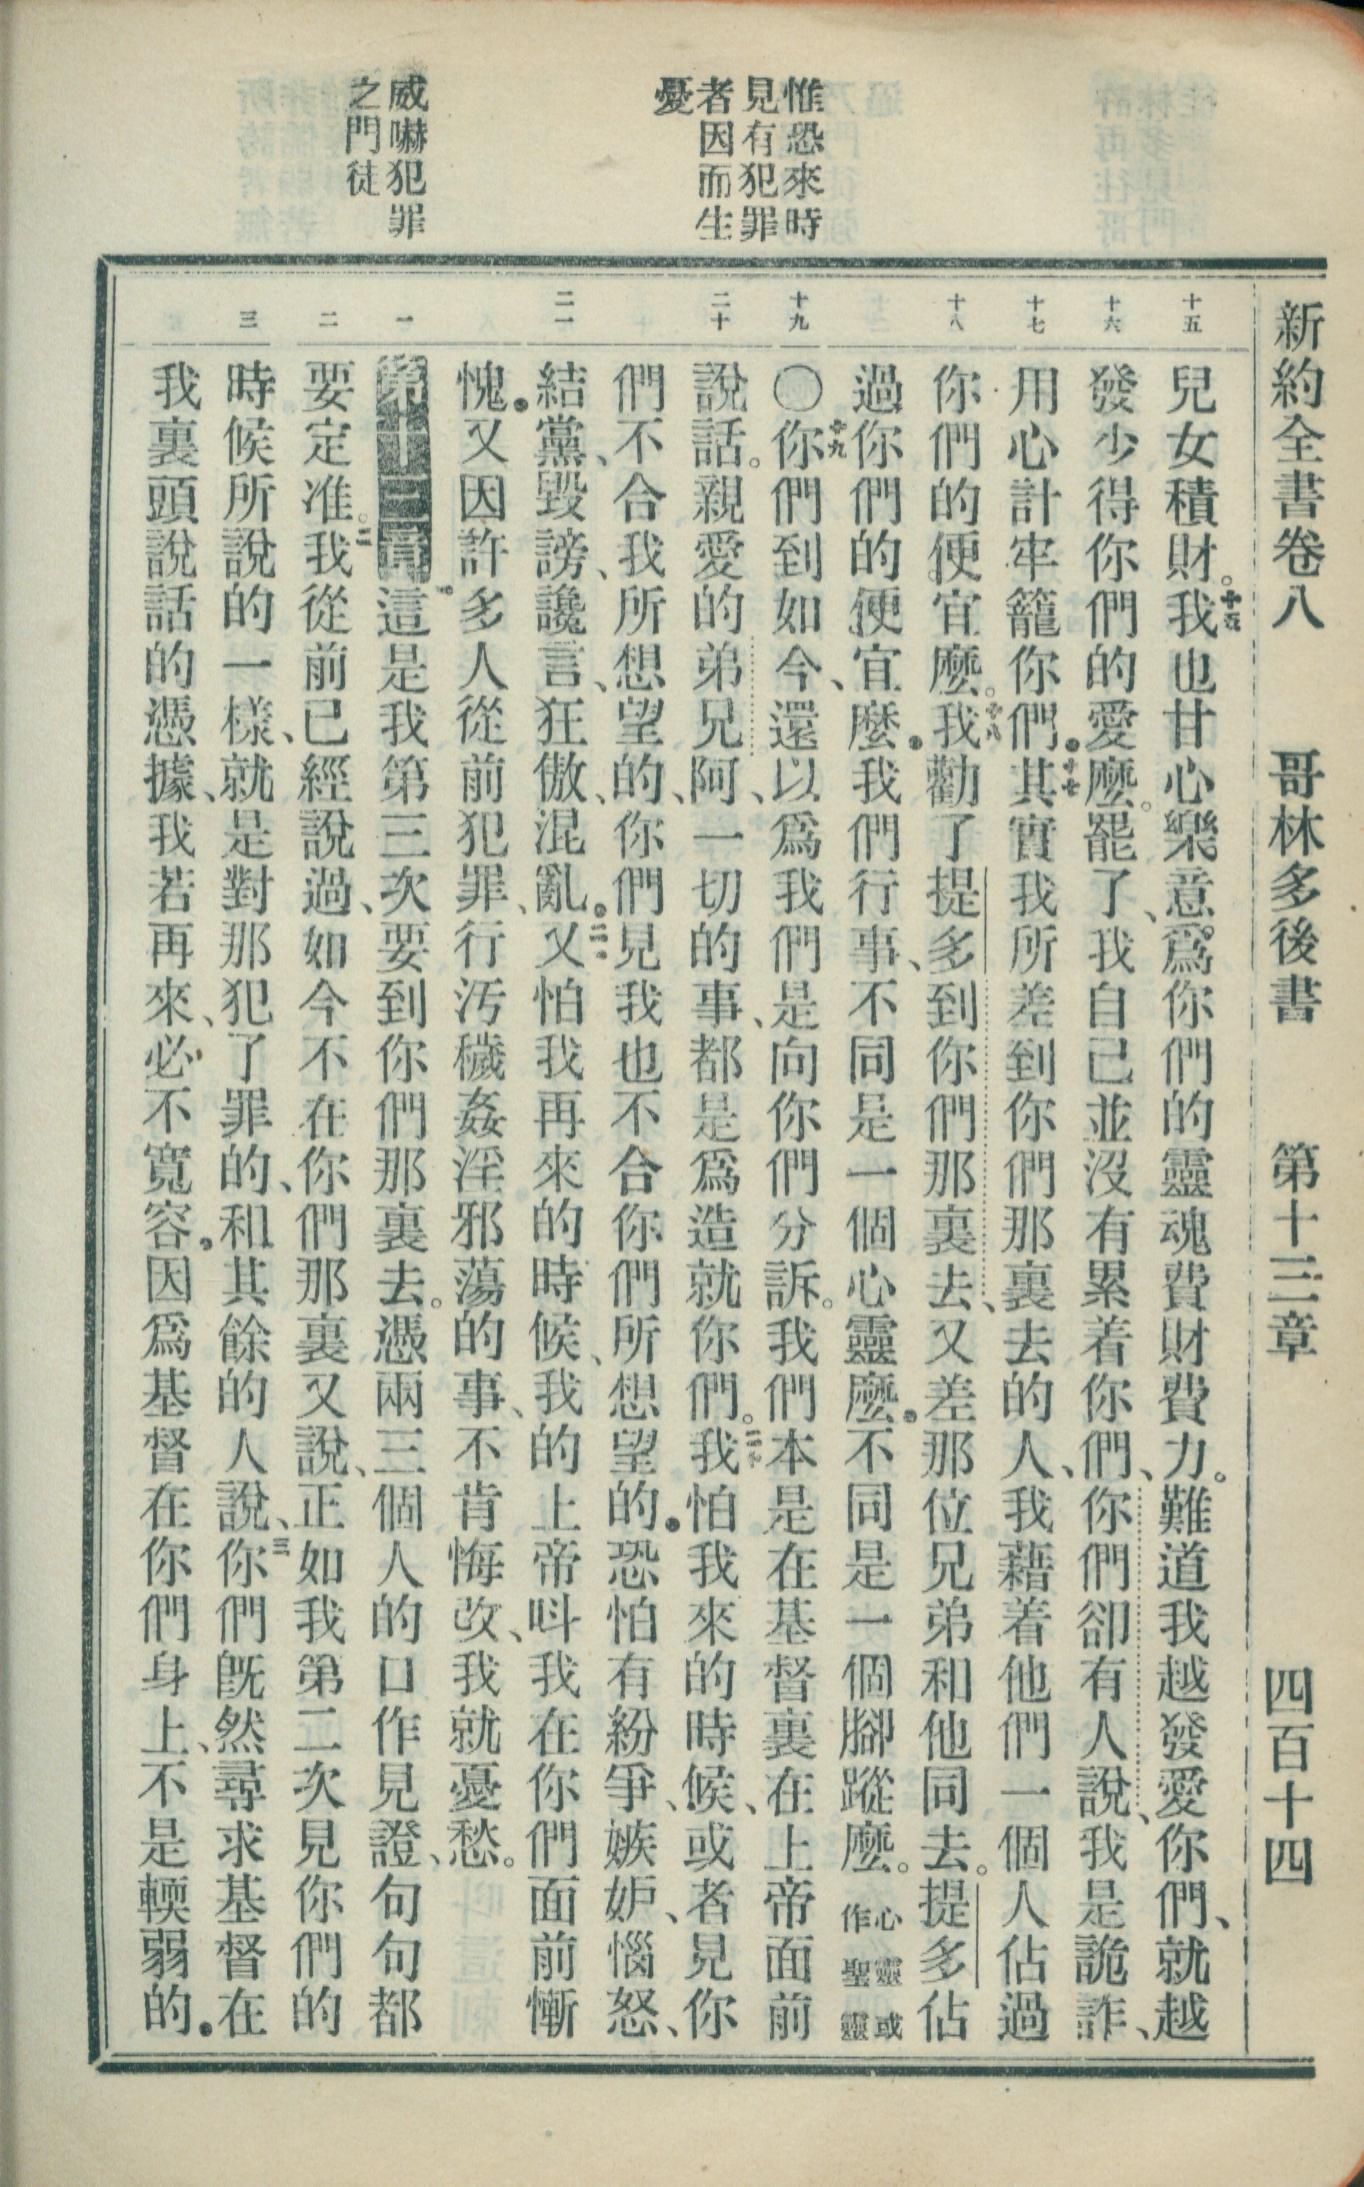 新約全書卷八　哥林多後書　第十三章　四百十四
惟恐來時
見有犯罪
者因而生
憂
威嚇犯罪
之門徒
十五
十六
十七
十八
十九
二十
二一
一
二
三
兒女積財。十五我也甘心樂意。爲你們的靈魂費財費力。難道我越發愛你們、就越
發少得你們的愛麼。罷了、我自己並沒有累着你們、你們卻有人說、我是詭詐、
用心計牢籠你們。十七其實我所差到你們那裏去的人、我藉着他們一個人佔過
你們的便宜麼。十八我勸了提多到你們那裏去、又差那位兄弟和他同去。提多佔
過你們的便宜麼。我們行事、不同是一個心靈麼。不同是一個腳蹤麼。心靈或作聖靈
〇十九你們到如今、還以爲我們是向你們分訴。我們本是在基督裏在上帝面前
說話。親愛的弟兄阿、一切的事、都是爲造就你們。二十我怕我來的時候、或者見你
們不合我所想望的、你們見我也不合你們所想望的。恐怕有紛爭、嫉妒、惱怒、
結黨、毀謗、讒言、狂傲、混亂。二一又怕我再來的時候、我的上帝呌我在你們面前慚
愧。又因許多人從前犯罪、行汚穢姦淫邪蕩的事、不肯悔改、我就憂愁。
第十三章一這是我第三次要到你們那裏去。憑兩三個人的口作見證、句句都
要定准。二我從前已經說過、如今不在你們那裏又說、正如我第二次見你們的
時候所說的一樣、就是對那犯了罪的、和其餘的人說、三你們旣然尋求基督在
我裏頭說話的憑據、我若再來、必不寬容。因爲基督在你們身上、不是輭弱的。